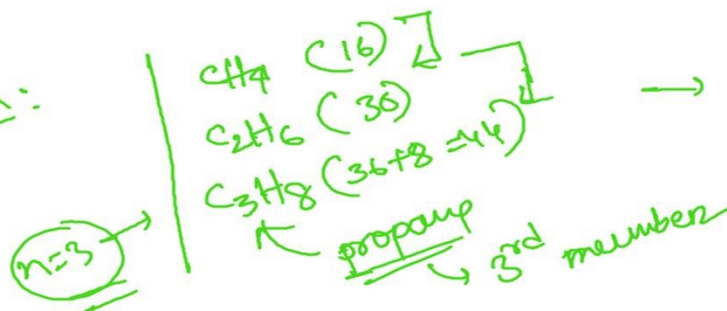 CH4 (16)
C2H6 (30)
C3H8 (36+8=44)
n=3
propane
3rd member